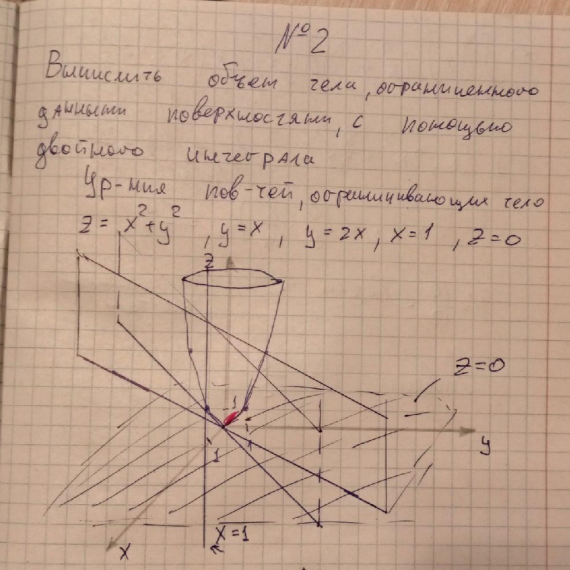 №2
Вычислить объем тела, ограниченного
данными поверхностями, с помощью
двойного интеграла
Ур-ния пов-тей, ограничивающих тело
z = x²+y² , y=x , y=2x , x=1 , z=0
z
z=0
1
1
1
y
x=1
x